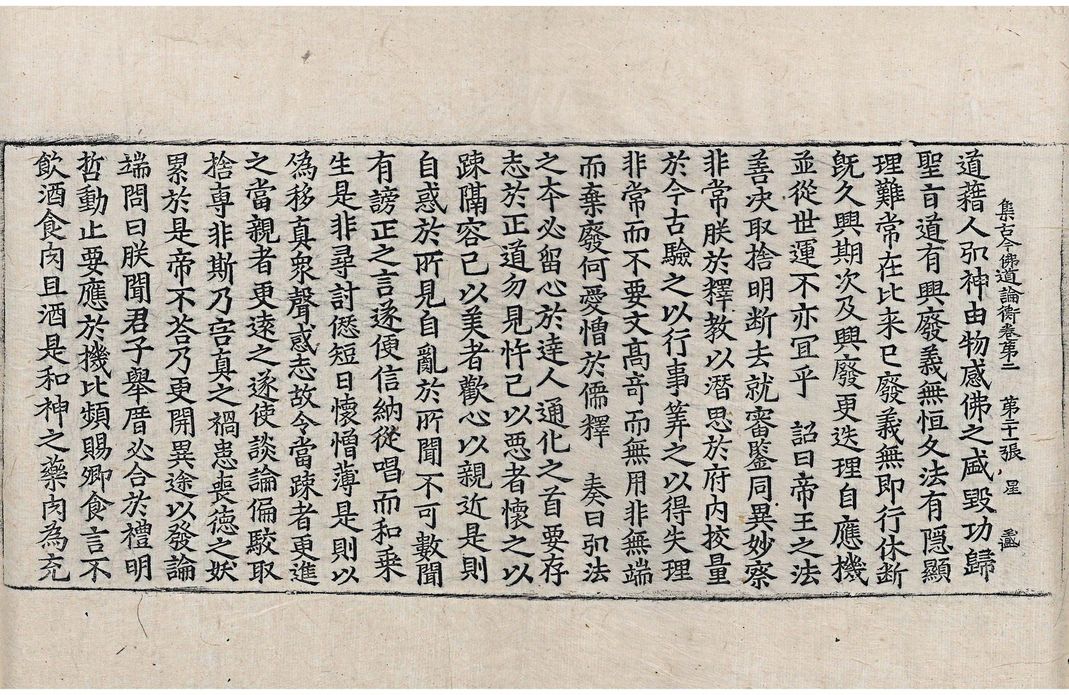 集古今佛道論衡卷第二　第三十張　星
道藉人弘神由物感佛之盛毀功歸
聖旨道有興廢義無恒久法有隱顯
理難常在比来已廢義無即行休断
旣久興期次及興廢更迭理自應機
並從世運不亦冝乎　詔曰帝王之法
善决取捨明断去就審鑒同異妙察
非常朕於釋教以潜思於府內挍量
於今古驗之以行事筭之以得失理
非常而不要文髙竒而無用非無端
而棄廢何愛憎於儒釋　奏曰弘法
之夲必留心於達人通化之首要存
志於正道勿見忤己以惡者懷之以
踈隔容己以美者歡心以親近是則
自惑於所見自亂於所聞不可數聞
有謗正之言遂便信納從唱而和乗
生是非尋討愆短日懷憎薄是則以
僞移真衆聲惑志故令當踈者更進
之當親者更遠之遂使談論偏駮取
捨專非斯乃害真之禍患喪德之妖
累於是帝不荅乃更開異途以發論
端問曰朕聞君子舉厝必合於禮明
哲動止要應於機比頻賜卿食言不
飲酒食肉且酒是和神之藥肉為充